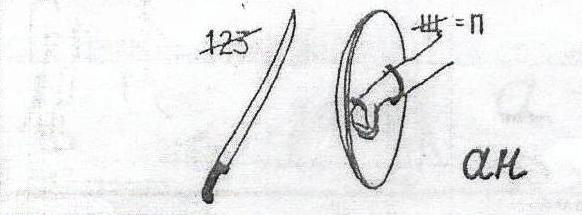 123
Ш = П
ан